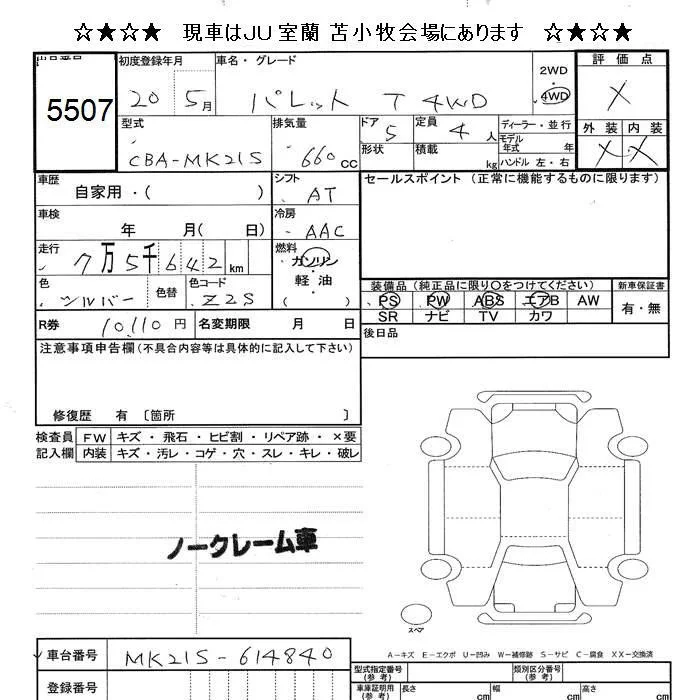 ☆★☆★ 現車はJU室蘭 苫小牧会場にあります ☆★☆★
出品番号 初度登録年月 車名・グレード 2WD 評価点
5507 20 5月 パレット T 4WD 4WD X
型式 排気量 ドア 5 定員 4人 ディーラー・並行 外装 内装
CBA-MK21S 660cc 形状 積載 kg モデル年式 年 X X
ハンドル 左・右
車歴 自家用・( ) シフト AT セールスポイント (正常に機能するものに限ります)
車検 年 月( 日) 冷房 AAC
走行 7万5千642km 燃料 ガソリン 軽油 ( )
色 シルバー 色替 色コード Z2S 装備品 (純正品に限り○をつけてください) 新車保証書
PS PW ABS エアB AW 有・無
SR ナビ TV カワ
R券 10,110円 名変期限 月 日 後日品
注意事項申告欄(不具合内容等は具体的に記入して下さい)
修復歴 有 〔箇所 〕
検査員 FW キズ・飛石・ヒビ割・リペア跡・×要
記入欄 内装 キズ・汚レ・コゲ・穴・スレ・キレ・破レ
ノークレーム車
スペア
A－キズ E－エクボ U－凹み W－補修跡 S－サビ C－腐食 XX－交換済
車台番号 MK21S-614840 型式指定番号(参考) 類別区分番号(参考)
登録番号 車庫証明用(参考) 長さ cm 幅 cm 高さ cm